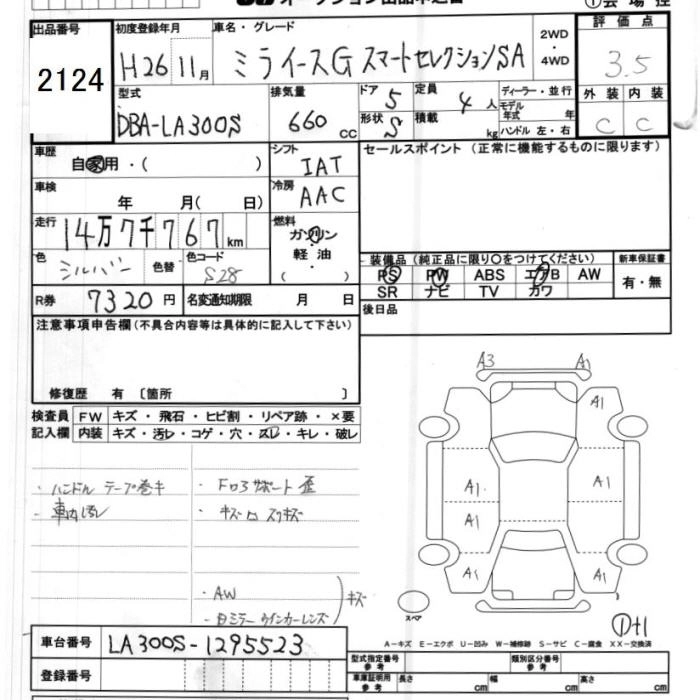 出品番号
2124
初度登録年月
H26 11月
車名・グレード
ミライースG スマートセレクションSA
2WD
・
4WD
評価点
3.5
外装 内装
C C
型式
DBA-LA300S
排気量
660 cc
ドア 5
形状 5
定員 4 人
積載 kg
ディーラー・並行
モデル年式 年
ハンドル 左・右
車歴
自家用・( )
シフト
IAT
セールスポイント (正常に機能するものに限ります)
車検
年 月( 日)
冷房
AAC
走行
14万7千767km
燃料
ガソリン
軽油
( ・ )
色
シルバー
色替
色コード
S28
装備品 (純正品に限り○をつけてください)
新車保証書
PS PW ABS エアB AW
有・無
SR ナビ TV カワ
R券 7320円
名変通知期限 月 日
後日品
注意事項申告欄(不具合内容等は具体的に記入して下さい)
修復歴 有 〔箇所 〕
検査員記入欄
FW キズ・飛石・ヒビ割・リペア跡・×要
内装 キズ・汚レ・コゲ・穴・スレ・キレ・破レ
・ハンドル テープ巻キ
・車内汚レ
・F ロ3サポート 歪
・キズ ロ スリキズ
・AW
・白ミラーウインカーレンズ
キズ
A3 A1
A1
A1 A1
A1
A1 A1
スペア
①+1
A－キズ E－エクボ U－凹み W－補修跡 S－サビ C－腐食 XX－交換済
車台番号 LA300S-1295523
登録番号
型式指定番号 参考
類別区分番号 参考
車庫証明用 参考
長さ cm 幅 cm 高さ cm